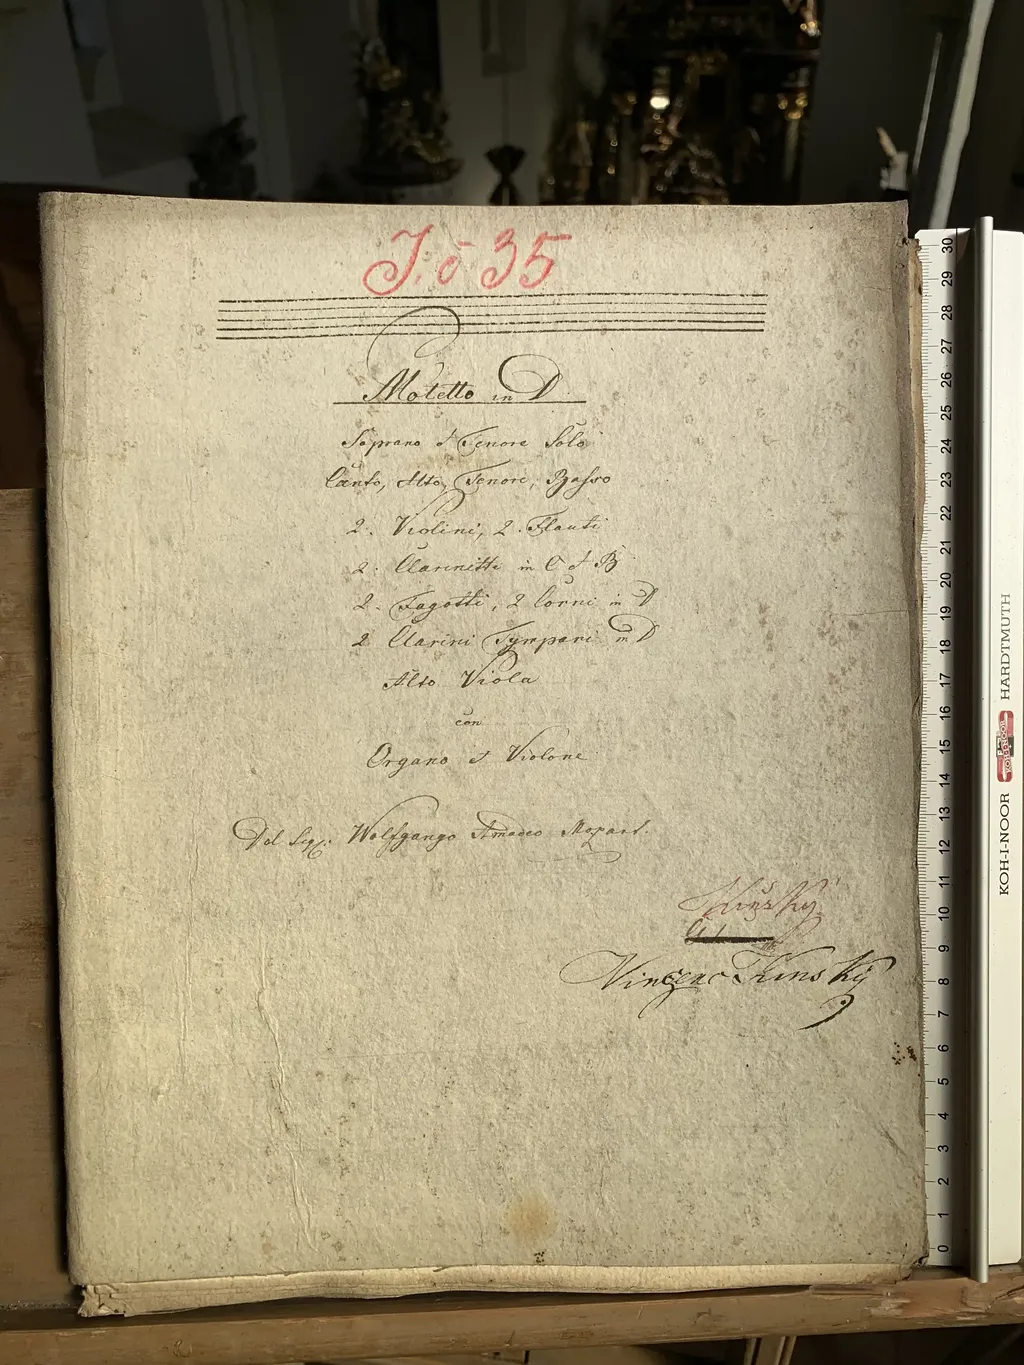 J. č 35
Motetto in D
Soprano et Tenore Solo
Canto, Alto, Tenore, Basso
2. Violini, 2. Flauti
2. Clarinetti in C et B
2. Fagotti, 2 Corni in D
2 Clarini Tympani in D
Alto Viola
con
Organo et Violone
Del Sigr. Wolfgango Amadeo Mozart.
Kinský
Vincenc Kinský
30
29
28
27
26
25
24
23
22
21
20
19
18
17
16
15
14
13
12
11
10
9
8
7
6
5
4
3
2
1
0
KOH-I-NOOR HARDTMUTH
KOH-I-NOOR